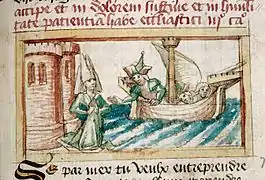 accipe et in dolorem sustine et in humili
tate patientia habe ecclastici ijo ca
Se par mer tu veulx entreprendre